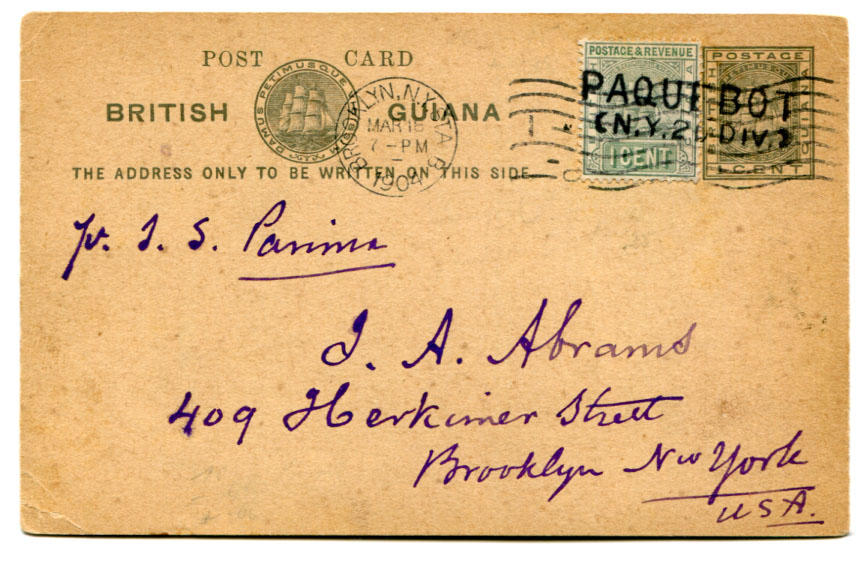 POST CARD
BRITISH GUIANA
DAMUS PETIMUSQUE
THE ADDRESS ONLY TO BE WRITTEN ON THIS SIDE
BROOKLYN, N.Y. STA. B
MAR 18
7-PM
1904
POSTAGE & REVENUE
1 CENT
POSTAGE
GUIANA
1 CENT
PAQUEBOT
(N.Y. 2D DIV.)
pr. S. S. Parima
J. A. Abrams
409 Herkimer Street
Brooklyn New York
USA.